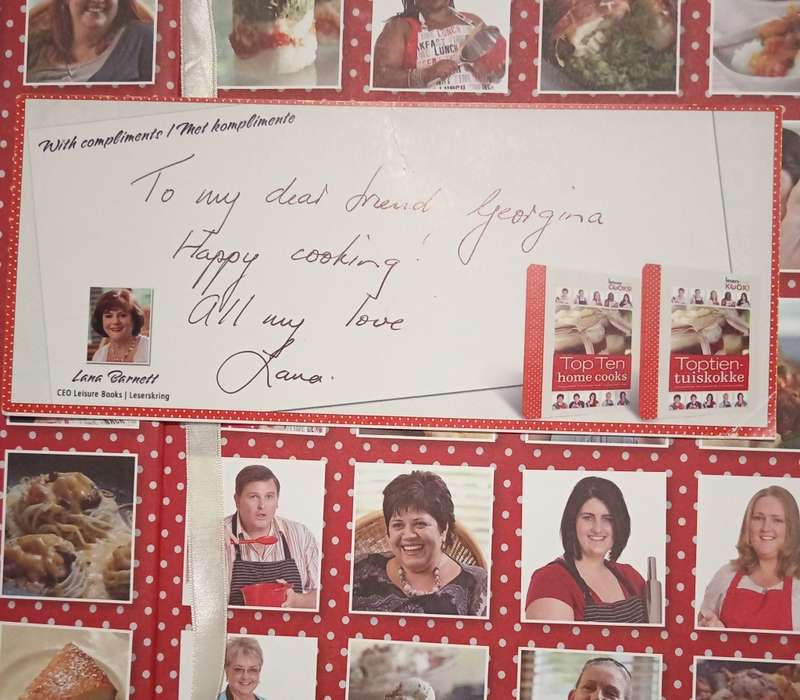 AKFAST LUNCH
With compliments | Met komplimente
To my dear friend Georgina
Happy cooking!
All my love
Lana.
Lana Barnett
CEO Leisure Books | Leserskring
Top Ten
home cooks
KOOK!
Toptien-
tuiskokke